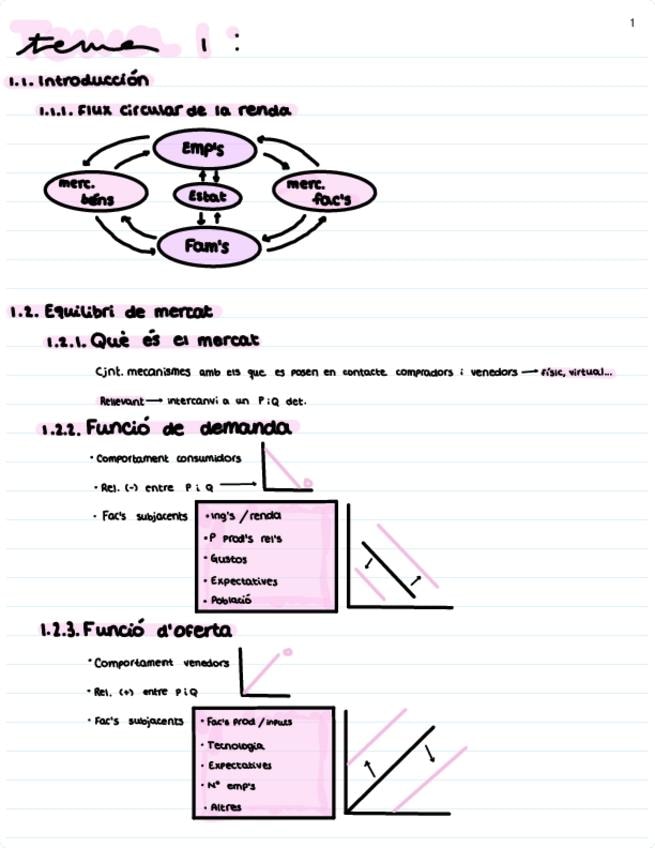 1
tema 1:
1.1. Introducción
1.1.1. Flux circular de la renda
Emp's
merc. béns
Estat
merc. fac's
Fam's
1.2. Equilibri de mercat
1.2.1. Què és el mercat
Cjnt. mecanismes amb els que es posen en contacte compradors i venedors → físic, virtual...
Rellevant → intercanvi a un P i Q det.
1.2.2. Funció de demanda
· Comportament consumidors
· Rel. (-) entre P i Q →
D
· Fac's subjacents
· Ing's / renda
· P prod's rel's
· Gustos
· Expectatives
· Població
1.2.3. Funció d'oferta
· Comportament venedors
O
· Rel. (+) entre P i Q
· Fac's subjacents
· Fac's prod / inputs
· Tecnologia
· Expectatives
· Nº emp's
· Altres